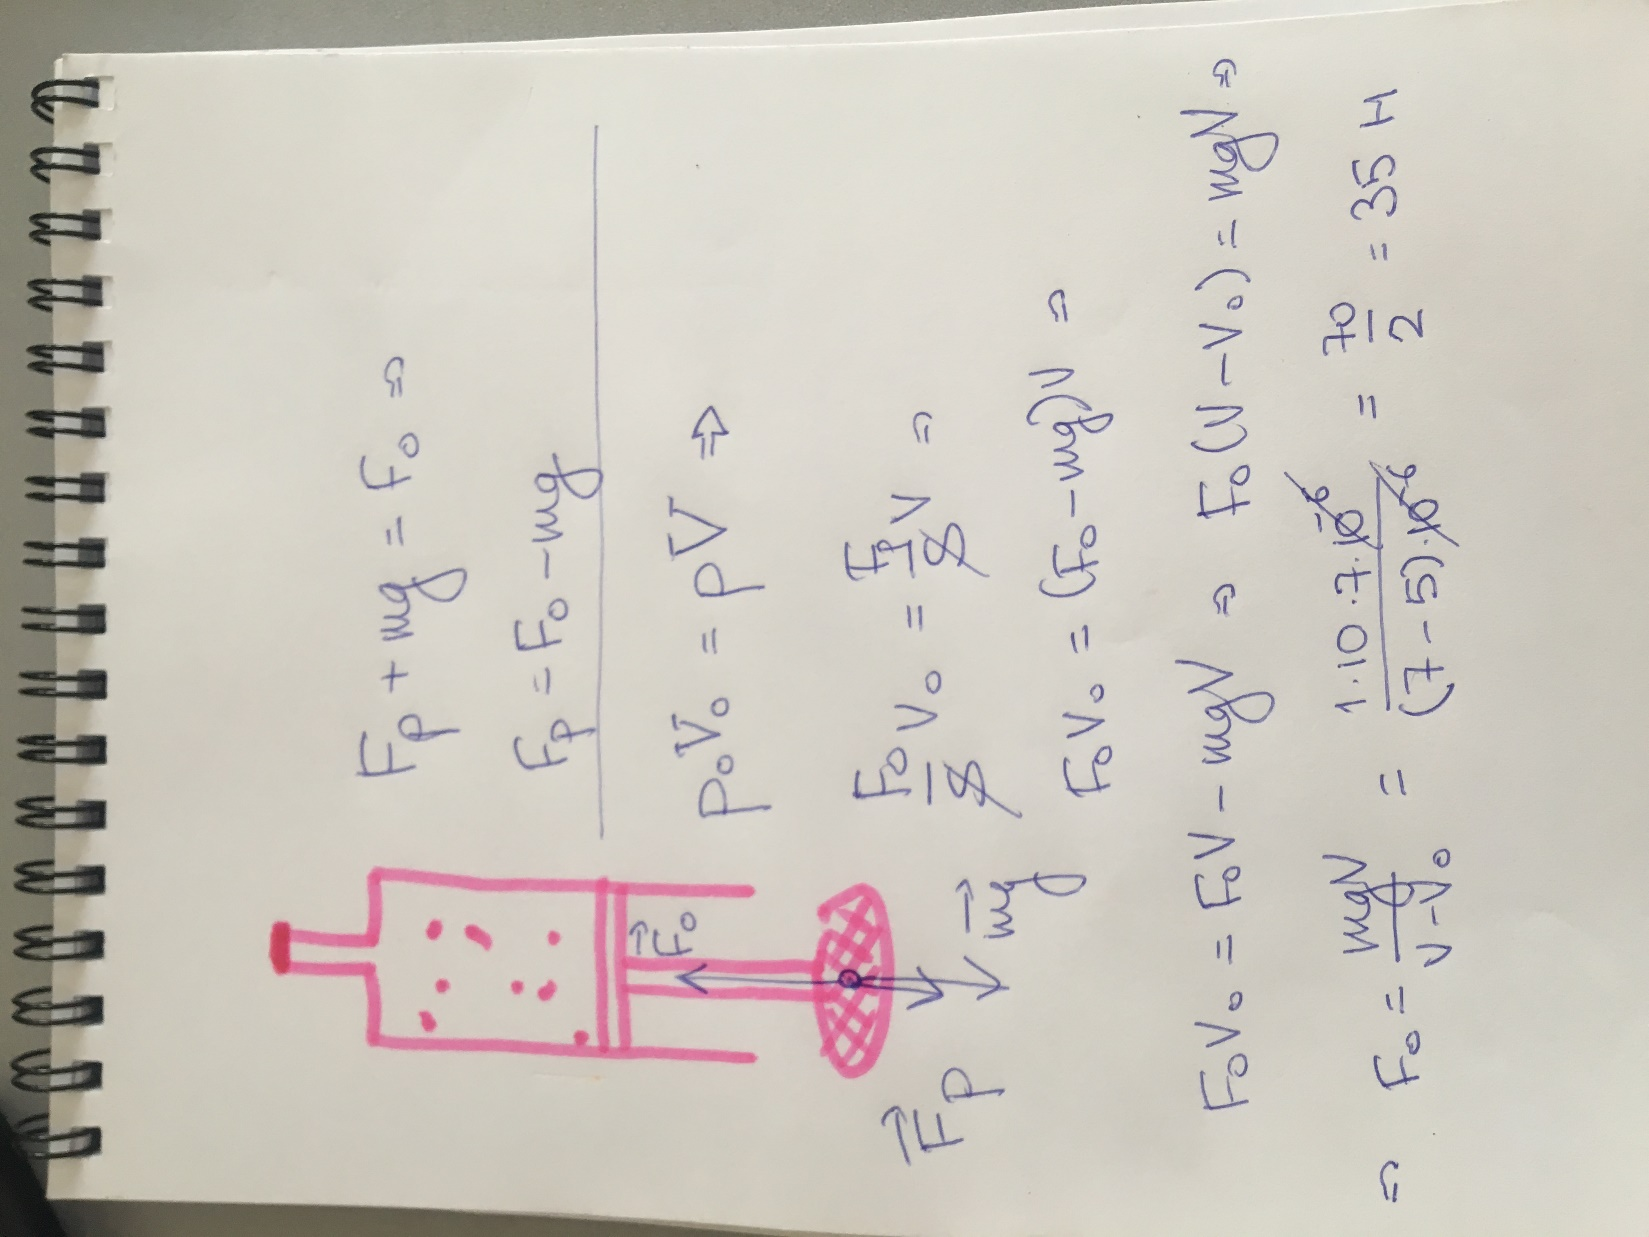 Fp + mg = F₀ ⇒
Fp = F₀ − mg
P₀V₀ = PV ⇒
F₀/S V₀ = Fp/S V ⇒
F₀V₀ = (F₀ − mg)V ⇒
F₀V₀ = F₀V − mgV ⇒ F₀(V − V₀) = mgV ⇒
⇒ F₀ = mgV/V−V₀ = 1·10·7·10⁻⁶/(7−5)·10⁻⁶ = 70/2 = 35 Н
F₀
mg
Fp